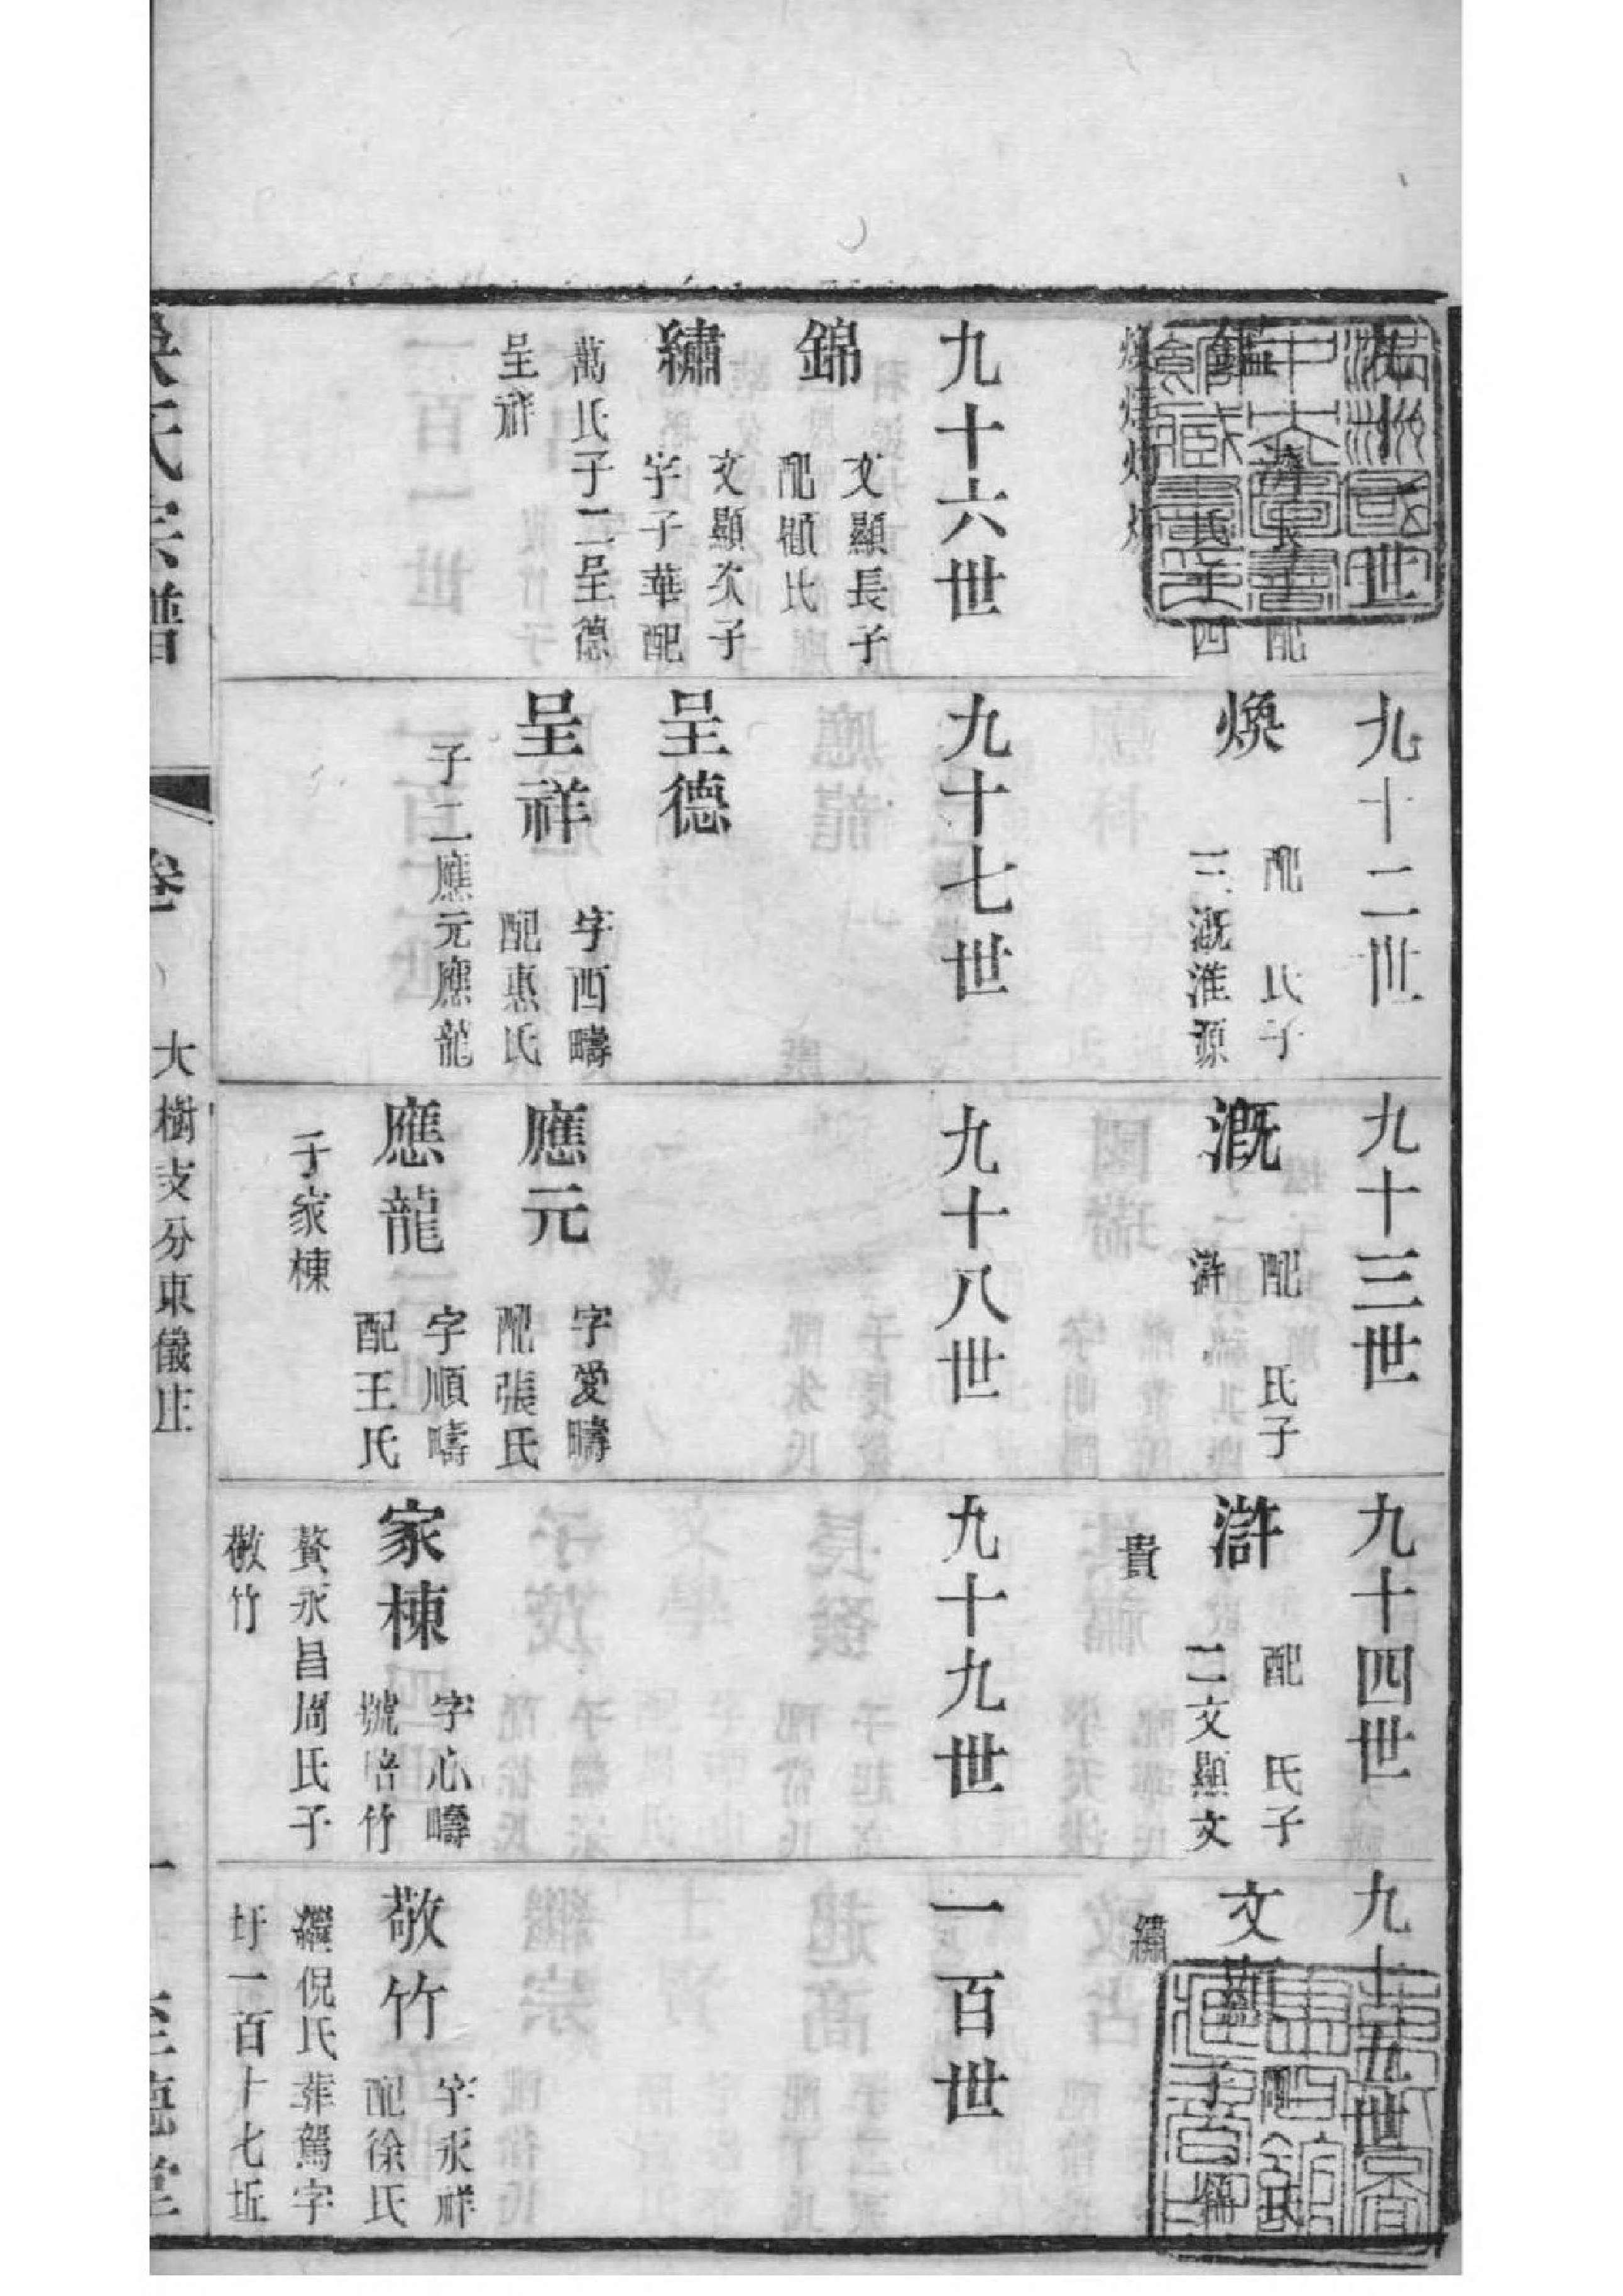 九十一世
鑑
濟長子配
氏子四
九十二世
煥
配 氏子
三溉淮源
九十三世
溉
配 氏子
滸
九十四世
滸
配 氏子
二文顯文
貴
九十五世
文顯
配 氏
子 錦
繡
九十六世
錦
文顯長子
配顧氏
繡
文顯次子
字子華配
萬氏子二呈德
呈祥
九十七世
呈德
呈祥
字西疇
配惠氏
子二應元應龍
九十八世
應元
字愛疇
配張氏
應龍
字順疇
配王氏
子家棟
九十九世
家棟
字心疇
號培竹
贅永昌周氏子
敬竹
一百世
敬竹
字永祥
配徐氏
繼倪氏葬駕字
圩一百十七坵
氏宗譜
卷
大樹支分東儀庄
一
至德堂